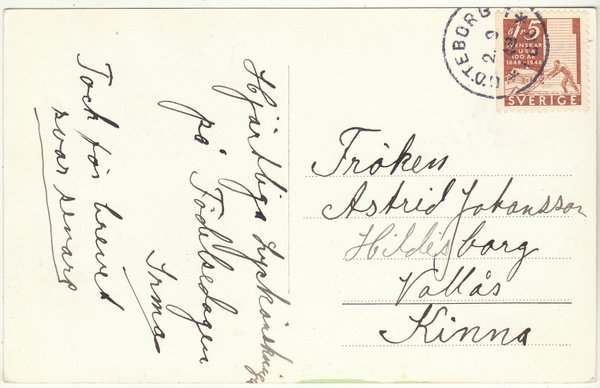 Hjärtliga Lyckönskning
på Födelsedagen
Irma
Tack för brevet
svar senare
GÖTEBORG 1
2. 9
15
SVENSKAR
U.S.A
100 ÅR
1848-1948
SVERIGE
Fröken
Astrid Johansson
Hildisborg
Vallås
Kinna